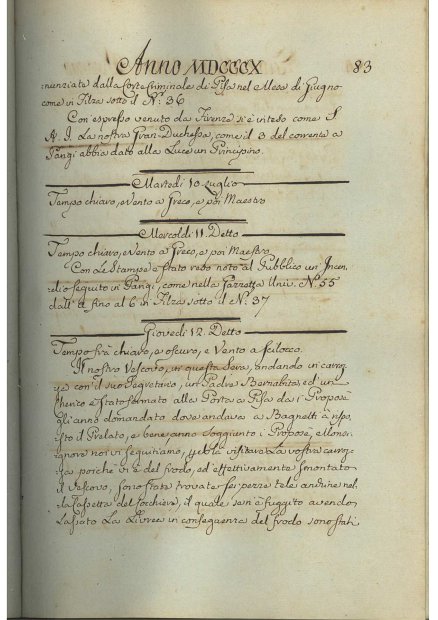 Anno MDCCCX 83
:nunziate dalla Corte Criminale di Pisa nel Mese di Giugno
come in Filza sotto il N.º 36
Con espresso venuto da Firenze si è inteso come S
A. I. La nostra Gran-Duchessa, come il 3 del corrente a
Parigi abbia dato alla Luce un Principino.
Martedì 10 Luglio
Tempo chiaro, e Vento a Greco, e poi Maestro
Mercoldì 11. Detto
Tempo chiaro, e Vento a Greco, e poi Maestro
Con Le Stampe è stato reso noto al Pubblico un' Incen
dio seguito in Parigi, come nella Gazzetta Univ. N.º 55
dall' a fino al 6 in Filza sotto il N.º 37
Giovedì 12. Detto
Tempo frà chiaro, e oscuro, e Vento a Scilocco
Il nostro Vescovo, in questa Sera, andando in carroz
za con il suo Segretario, un Padre Bernabita, ed un
cherico è stato fermato alla Porta a Pisa da i Proposé
gli anno domandato dove andava a Bagnetti à rispo
sto il Prelato, e bene anno Soggiunto i Proposé, Monsi
gnore noi vi seguitiamo, e si visiterà La vostra carroz
za poiche vi è del frodo, ed effettivamente smontato
il Vescovo, sono state trovate sei pezze tele andine nel
la Cassetta del Cocchiere, il quale sen'è fuggito avendo
Lasciato La Livrea in conseguenza del frodo sono stati